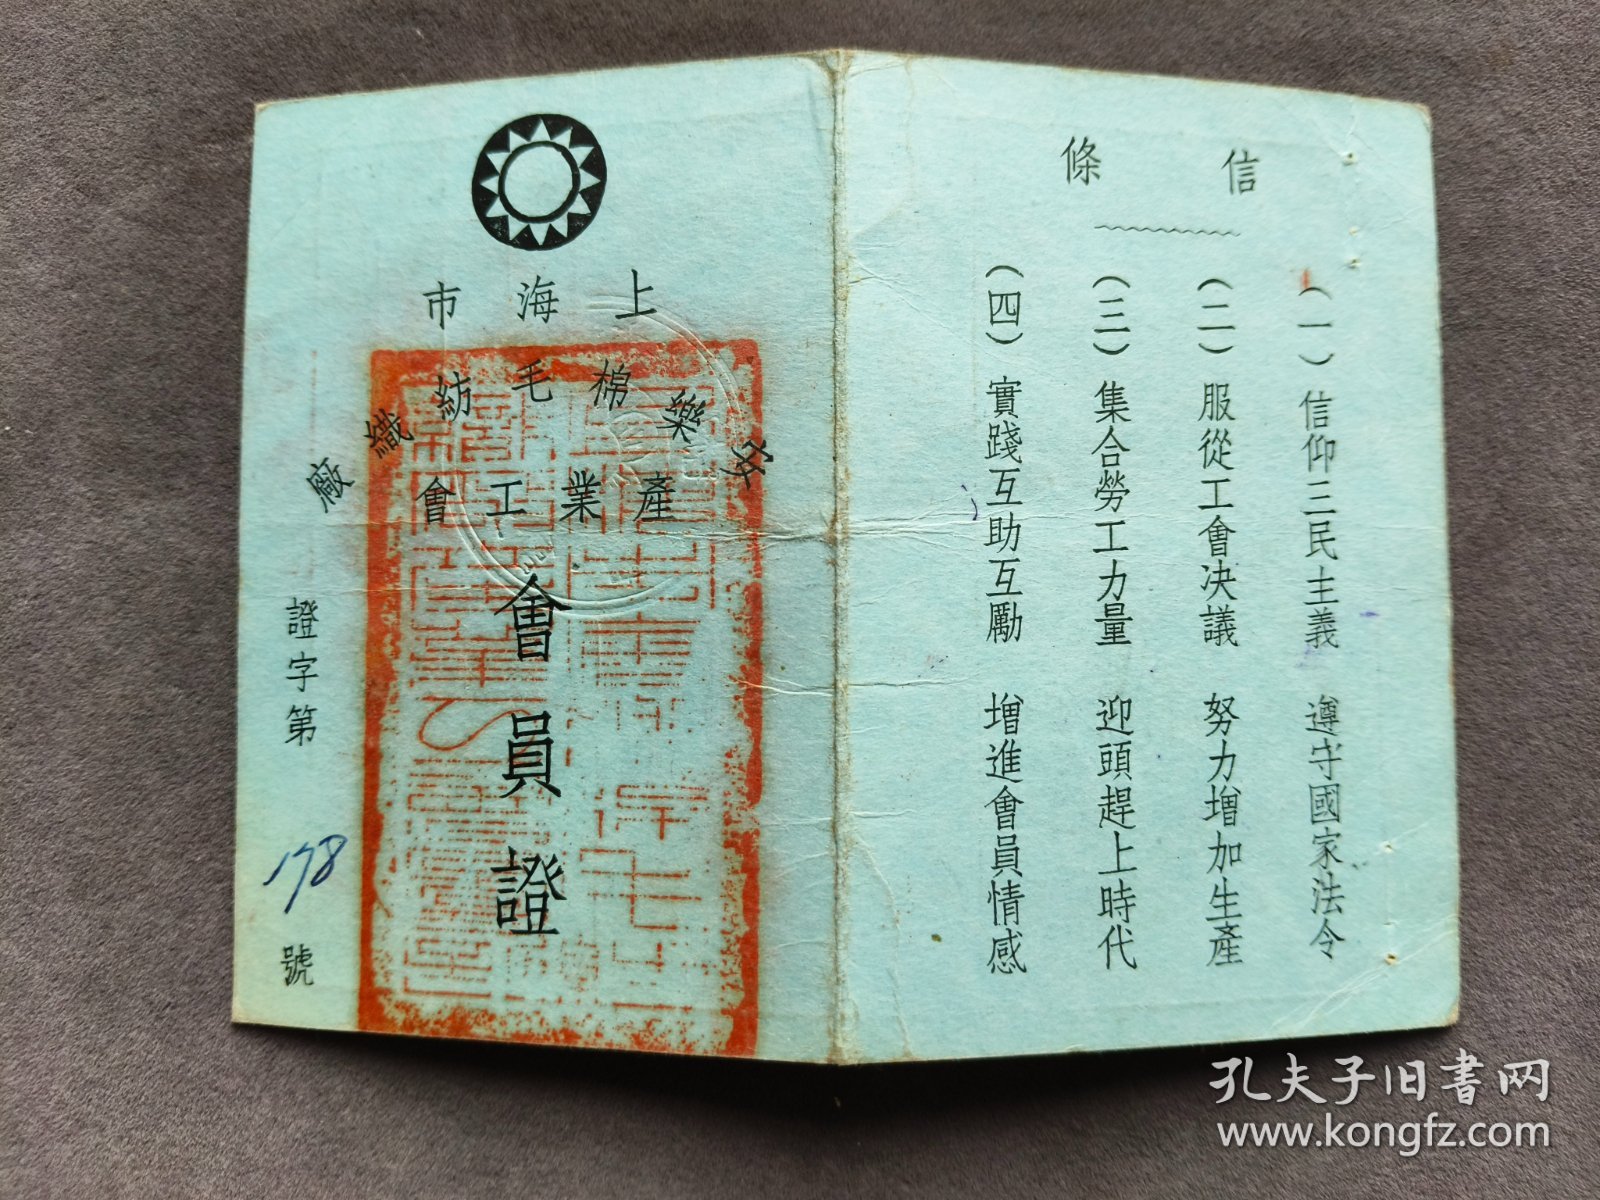 信條
(一)信仰三民主義 遵守國家法令
(二)服從工會決議 努力增加生產
(三)集合勞工力量 迎頭趕上時代
(四)實踐互助互勵 增進會員情感
上海市
安樂棉毛紡織廠
產業工會
會員證
證字第178號
孔夫子旧書网
www.kongfz.com